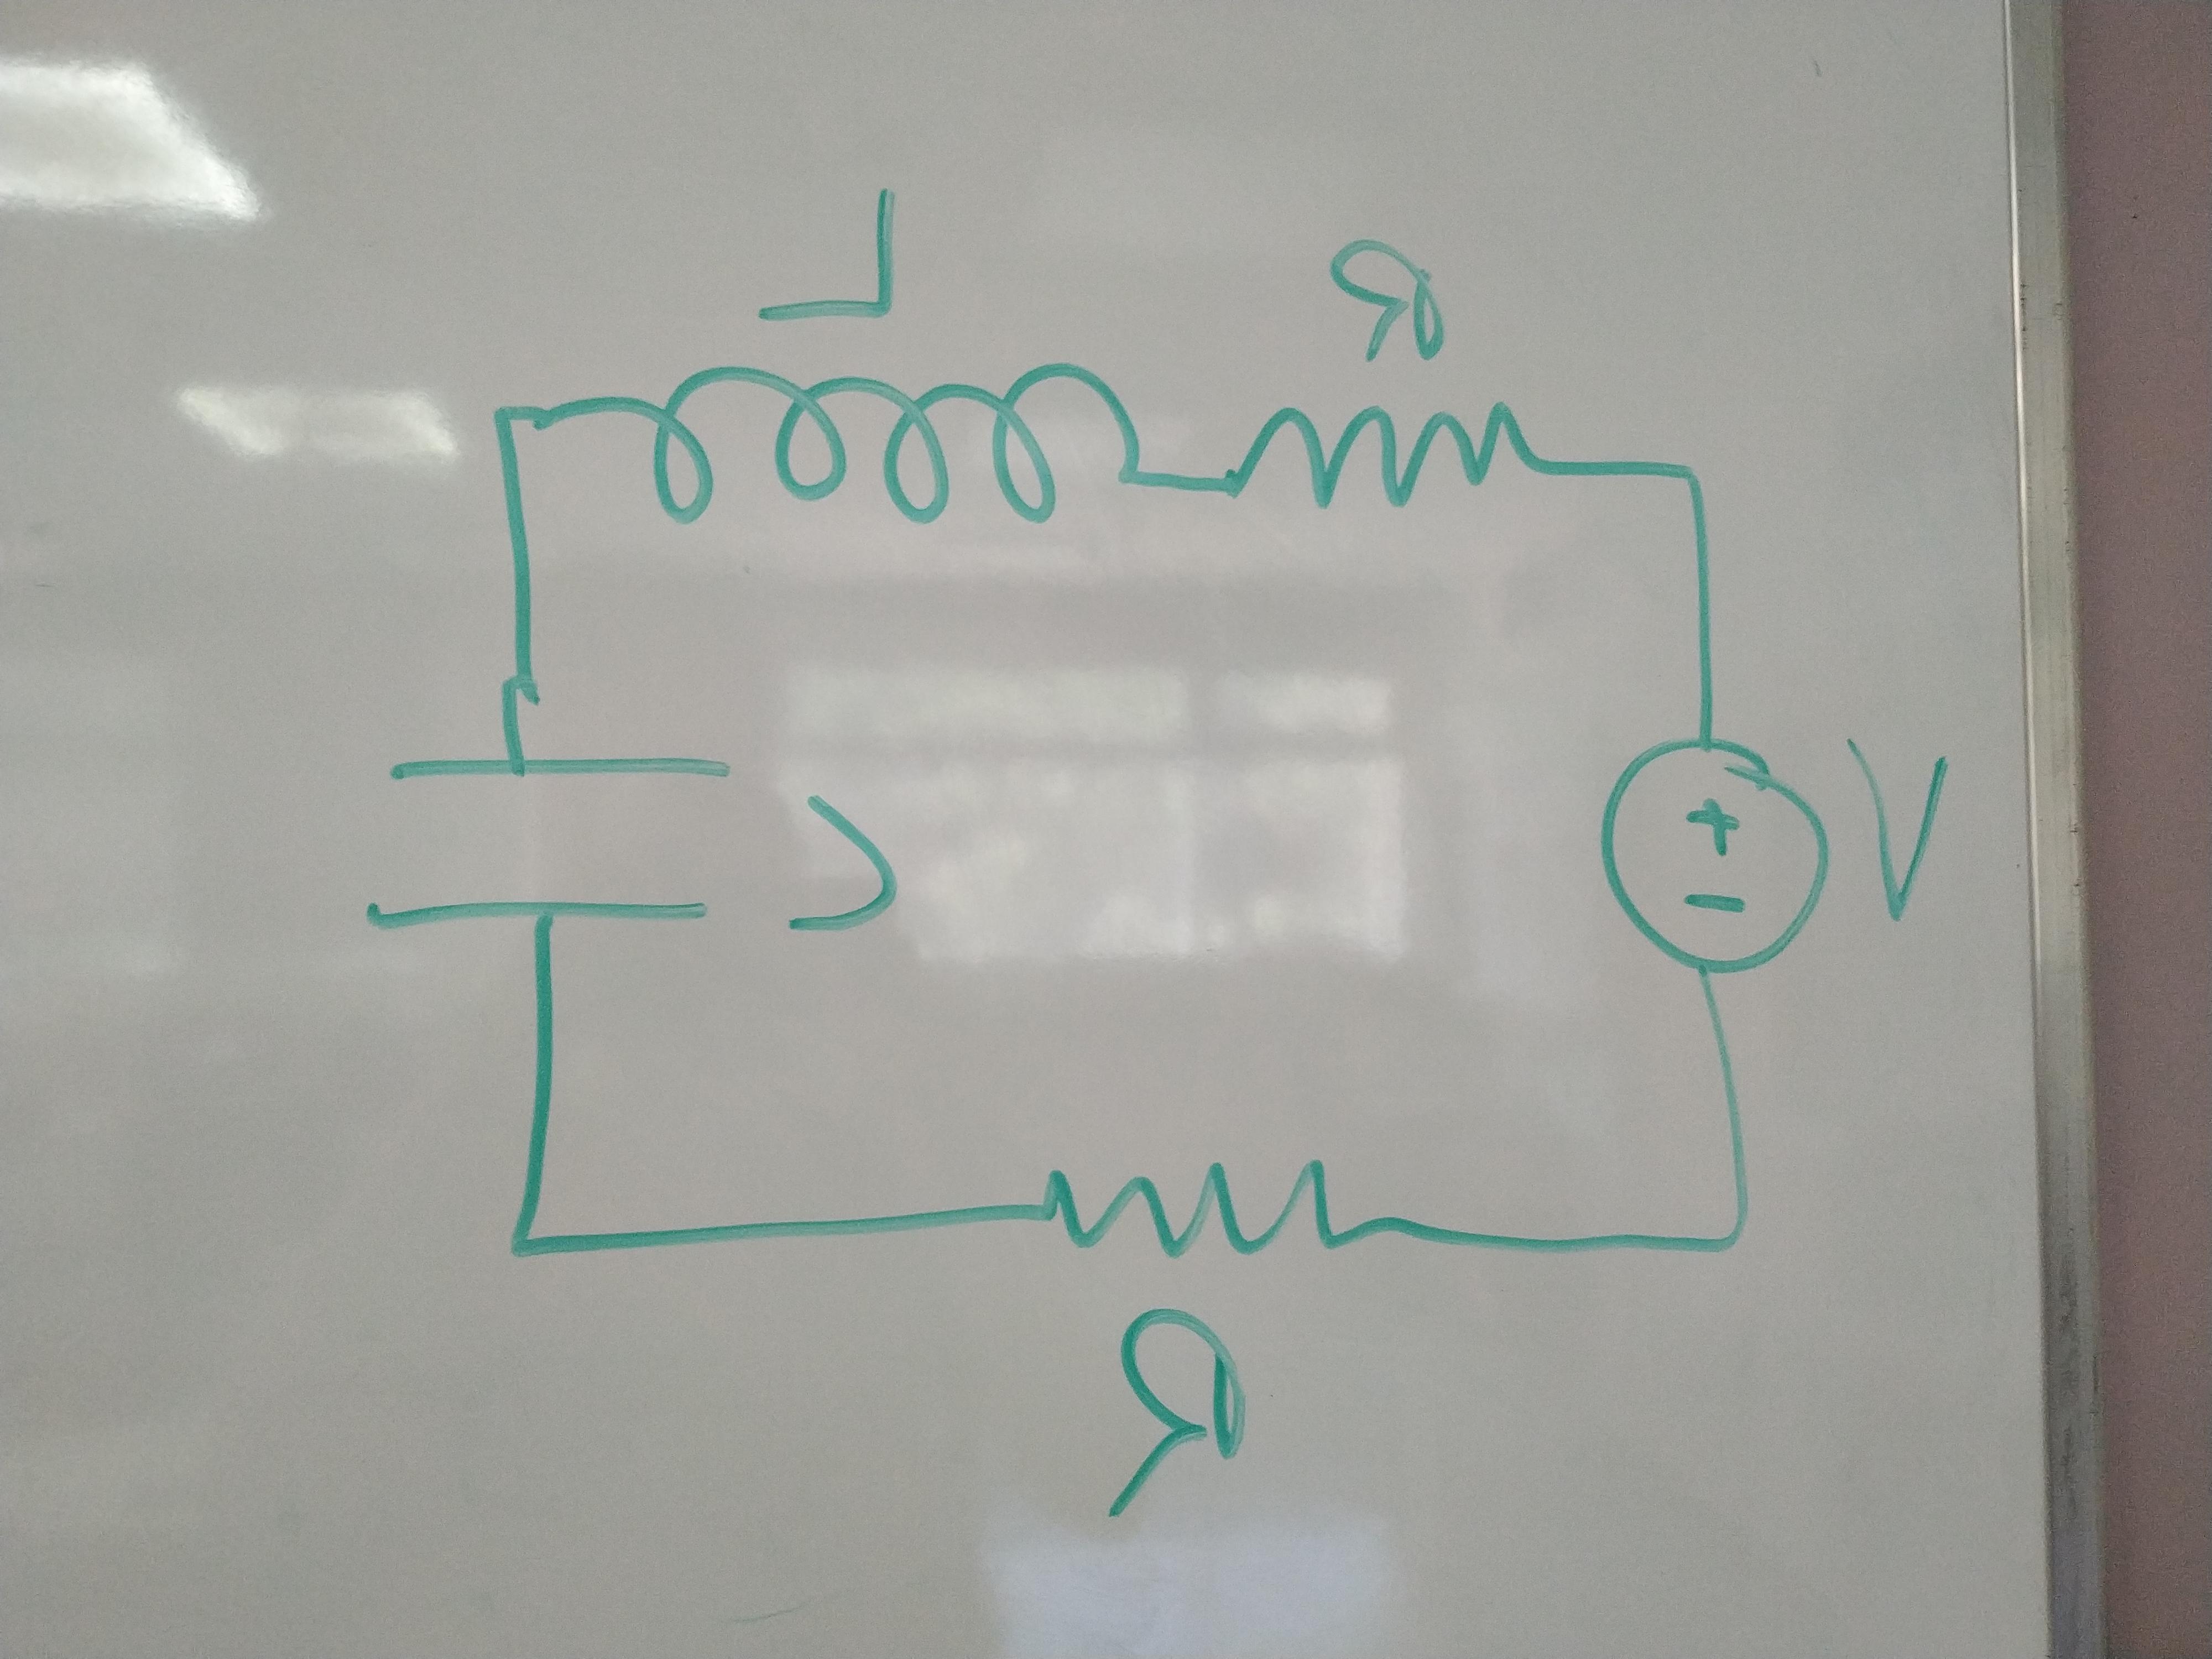 L
R
C
+
-
V
R